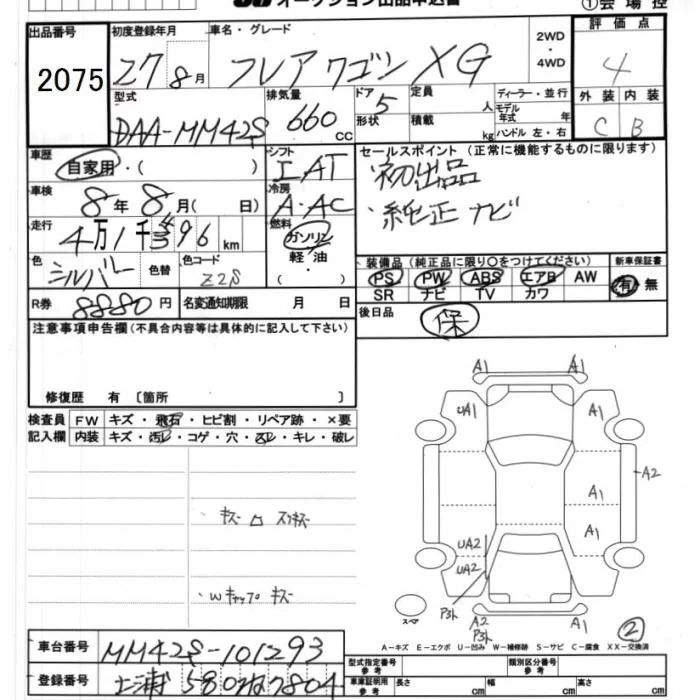 オークション出品申込書
①会場控
出品番号
2075
初度登録年月
27 8月
車名・グレード
フレアワゴン XG
2WD
・
4WD
評価点
4
外装 内装
C B
型式
DAA-MM42S
排気量
660 CC
ドア 5
形状
定員 人
積載 kg
ディーラー・並行
モデル年式 年
ハンドル 左・右
車歴
自家用・( )
シフト
IAT
セールスポイント (正常に機能するものに限ります)
・初出品
・純正ナビ
車検
8年8月( 日)
冷房
A・AC
走行
4万1千396km
燃料
ガソリン
軽・油
( )
色
シルバー
色替
色コード
Z2S
装備品 (純正品に限り○をつけてください)
PS PW ABS エアB AW
SR ナビ TV カワ
新車保証書
有 無
R券
8880円
名変通知期限 月 日
後日品
保
注意事項申告欄(不具合内容等は具体的に記入して下さい)
修復歴 有 〔箇所 〕
検査員
記入欄
FW キズ・飛石・ヒビ割・リペア跡・×要
内装 キズ・汚レ・コゲ・穴・スレ・キレ・破レ
・キズ ロ スリキズ
・Wキャップ キズ
A1 A1
UA1 A1
A2
A1
A1
UA2
UA2
P3ト
A2
P3ト
A1
スペア
②
A-キズ E-エクボ U-凹み W-補修跡 S-サビ C-腐食 XX-交換済
車台番号
MM42S-101293
登録番号
土浦 580 7804
型式指定番号
参考
類別区分番号
参考
車庫証明用
参考
長さ cm 幅 cm 高さ cm